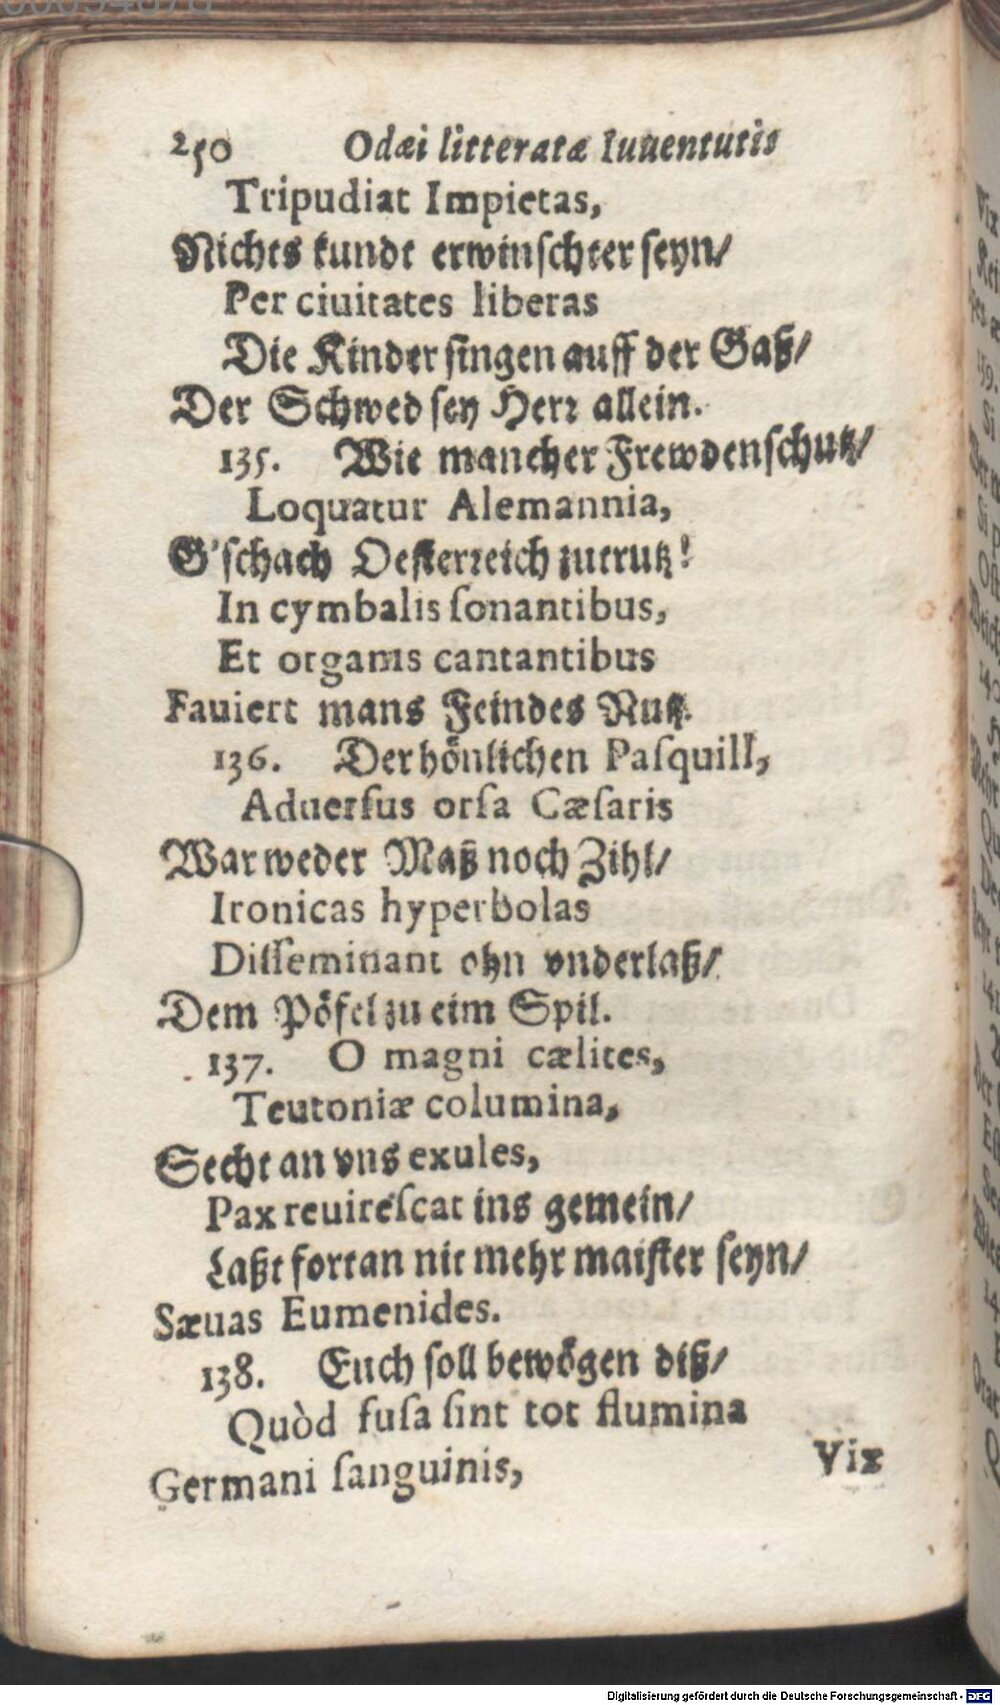 250 Odæi litteratæ Iuuentutis
Tripudiat Impietas,
Nichts kundt erwinſchter ſeyn/
Per ciuitates liberas
Die Kinder ſingen auff der Gaß/
Der Schwed ſey Herꝛ allein.
135. Wie mancher Frewdenſchutz/
Loquatur Alemannia,
G'ſchach Oeſterꝛeich zutrutz!
In cymbalis ſonantibus,
Et organis cantantibus
Fauiert mans Feindes Nutz.
136. Der hönlichen Paſquill,
Aduerſus orſa Cæſaris
War weder Maß noch Zihl/
Ironicas hyperbolas
Diſſeminant ohn vnderlaß/
Dem Pöfel zu eim Spil.
137. O magni cælites,
Teutoniæ columina,
Secht an vns exules,
Pax reuireſcat ins gemein/
Laßt fortan nit mehr maiſter ſeyn/
Sæuas Eumenides.
138. Euch ſoll bewögen diß/
Quòd fuſa ſint tot flumina
Germani ſanguinis,
Vix
Digitalisierung gefördert durch die Deutsche Forschungsgemeinschaft - DFG